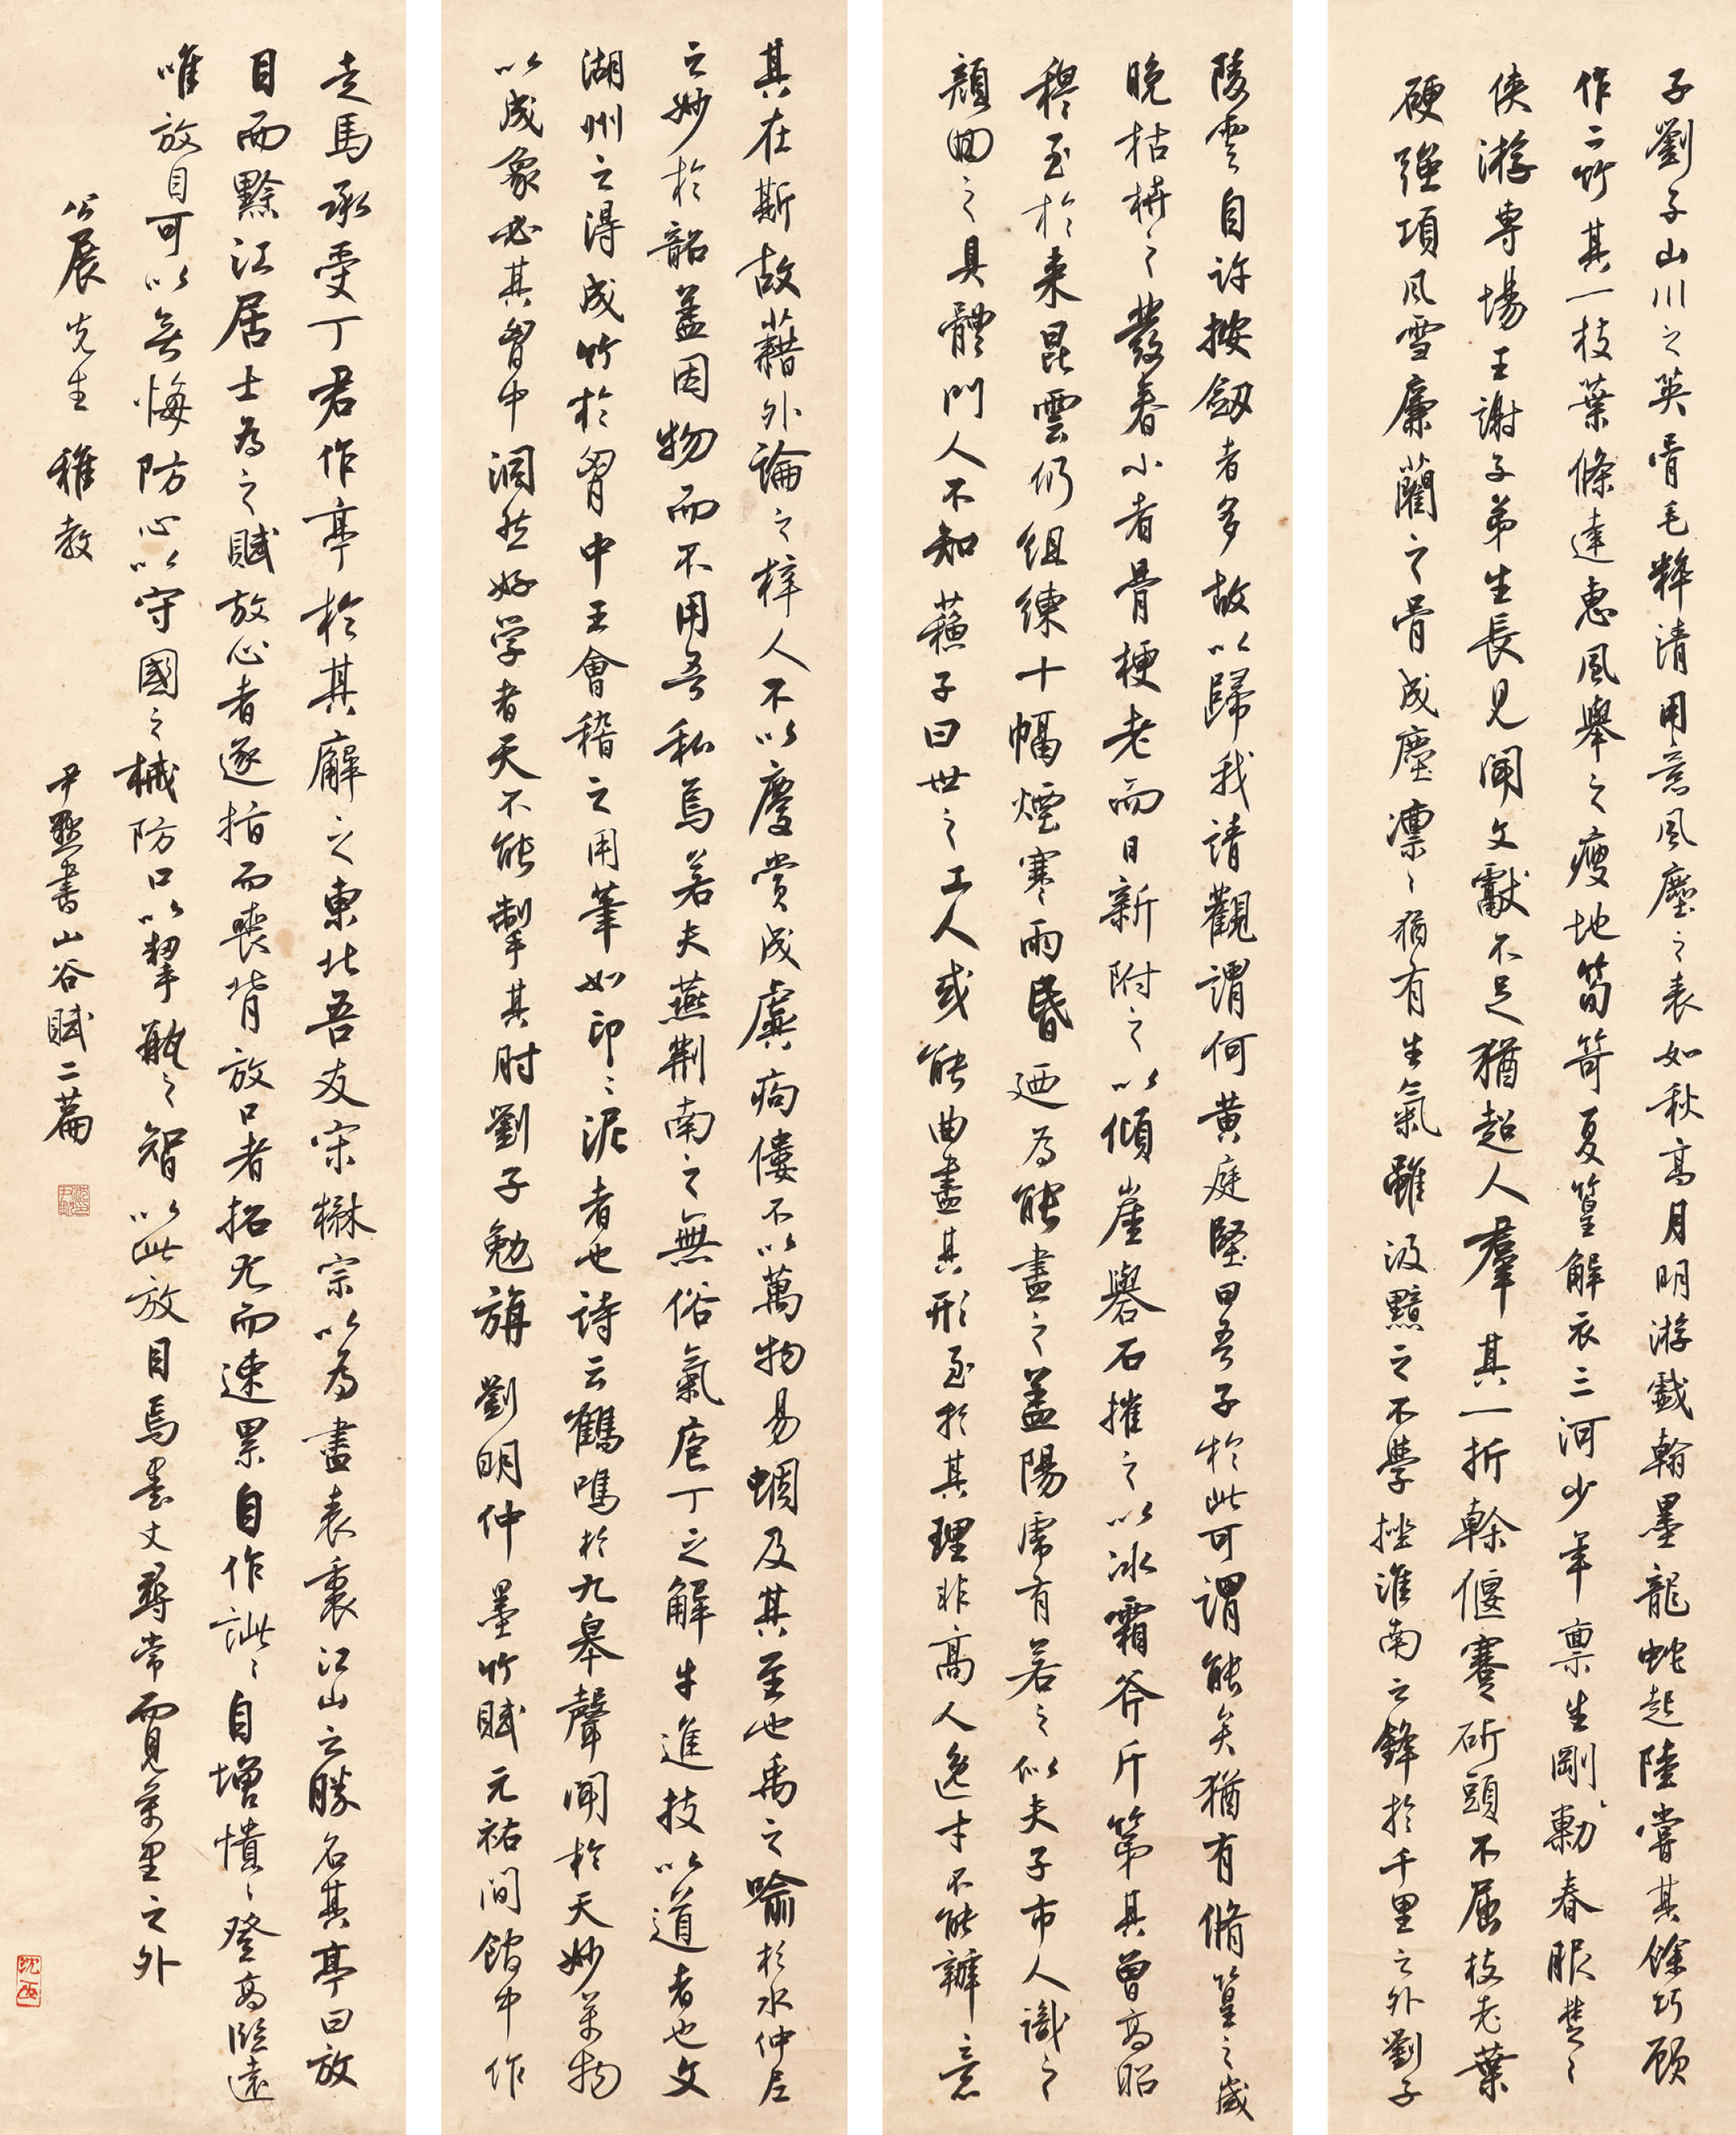 子劉子山川之英骨毛粹清用意風塵之表如秋高月明游戲翰墨龍蛇起陸嘗其餘巧顧
作二竹其一枝葉條達惠風舉之瘦地筍笴夏篁解衣三河少年稟生剛勁春服楚〻
俠游專場王謝子弟生長見聞文獻不足猶超人羣其一折幹偃蹇斫頭不屈枝老葉
硬強項風雪廉藺之骨成塵凛〻猶有生氣雖汲黯之不學挫淮南之鋒於千里之外劉子
陵雲自許按劔者多故以歸我請觀謂何黃庭堅曰吾子於此可謂能矣猶有脩篁之歲
晚枯枿之發春小者骨梗老而日新附之以傾崖礜石摧之以冰霜斧斤第其曾高昭
穆至於來昆雲仍組練十幅煙寒雨昏迺為能盡之盖陽虎有若之似夫子市人識之
顏回之具體門人不知蘓子曰世之工人或能曲盡其形至於其理非高人逸才不能辦意
其在斯故藉外論之梓人不以慶賞成虡痀僂不以萬物易蜩及其至也禹之喻於水仲尼
之妙於韶盖因物而不用吾私焉若夫燕荆南之無俗氣庖丁之解牛進技以道者也文
湖州之得成竹於胷中王會稽之用筆如印〻泥者也詩云鶴鳴於九皋聲聞於天妙萬物
以成象必其胷中洞然好学者天不能掣其肘劉子勉旃 劉明仲墨竹賦元祐間館中作
走馬承受丁君作亭於其廨之東北吾友宋楙宗以為盡表裏江山之勝名其亭曰放
目而黟江居士為之賦放心者逐指而喪背放口者招尤而速累自作訿〻自增憒〻登高臨遠
唯放目可以無悔防心以守國之械防口以挈瓶之智以此放目焉書文尋常覓萬里之外
公展先生 稚教
尹默書山谷賦二篇